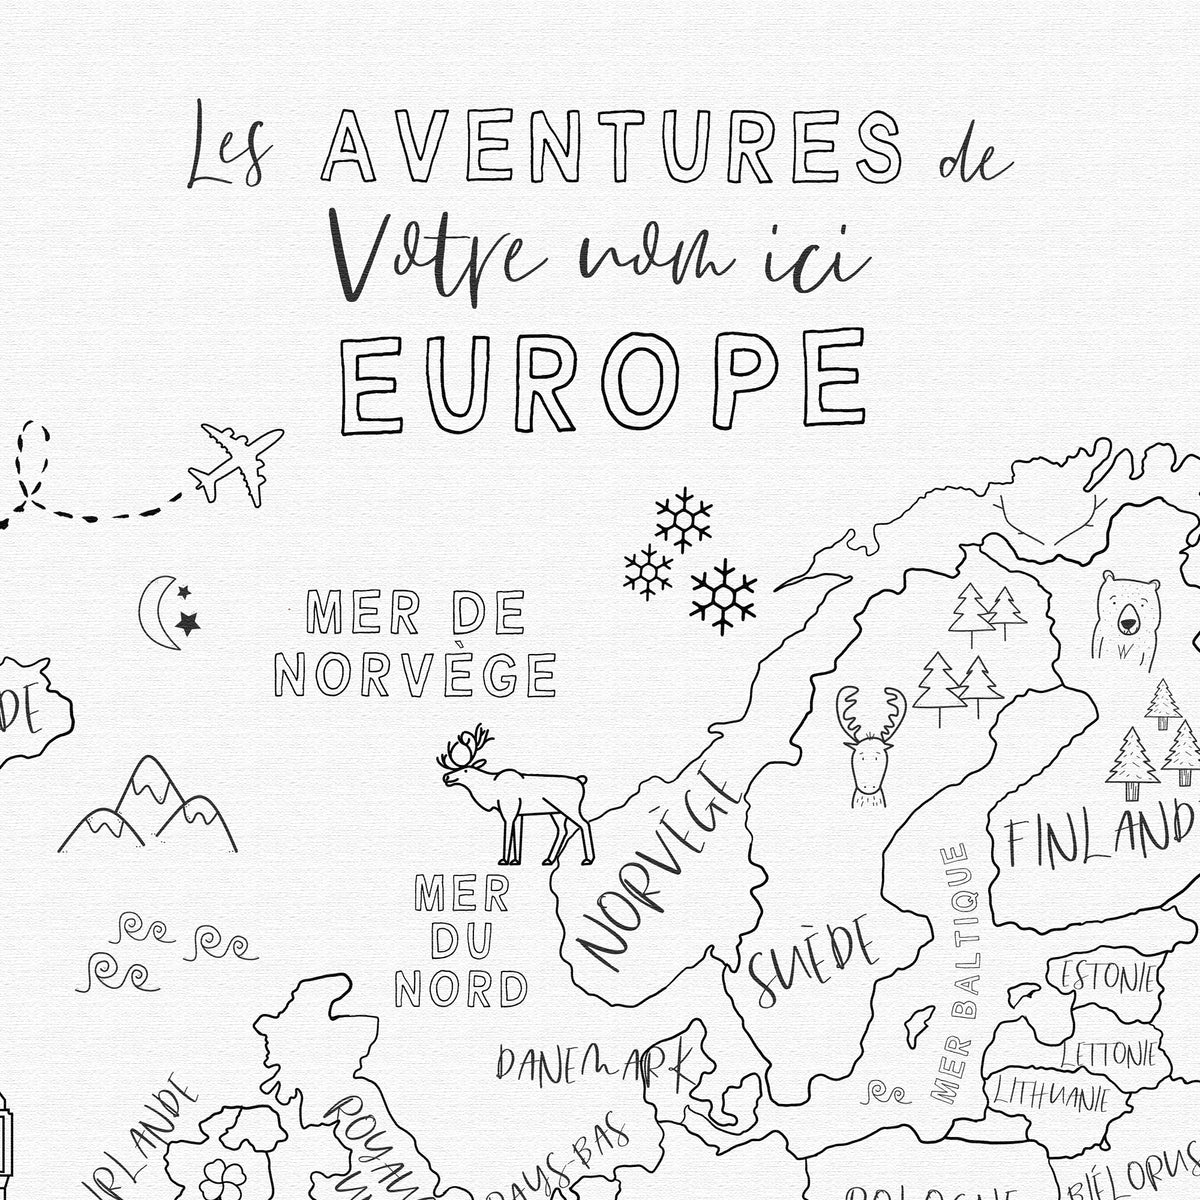 Les AVENTURES de
Votre nom ici
EUROPE
MER DE
NORVÈGE
DE
NORVÈGE
FINLAND
MER
DU
NORD
SUÈDE
MER BALTIQUE
ESTONIE
DANEMARK
LETTONIE
LITHUANIE
IRLANDE
ROYAU
PAYS-BAS
BIÉLORUS
POLOGNE